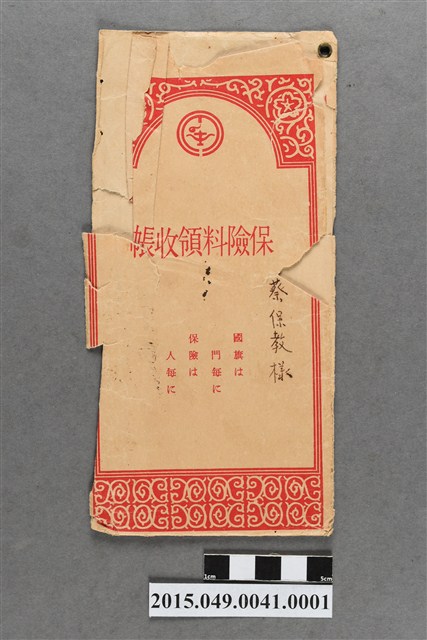 保險料領收帳
蔡保教様
國旗は
門每に
保險は
人每に
1cm
5cm
2015.049.0041.0001